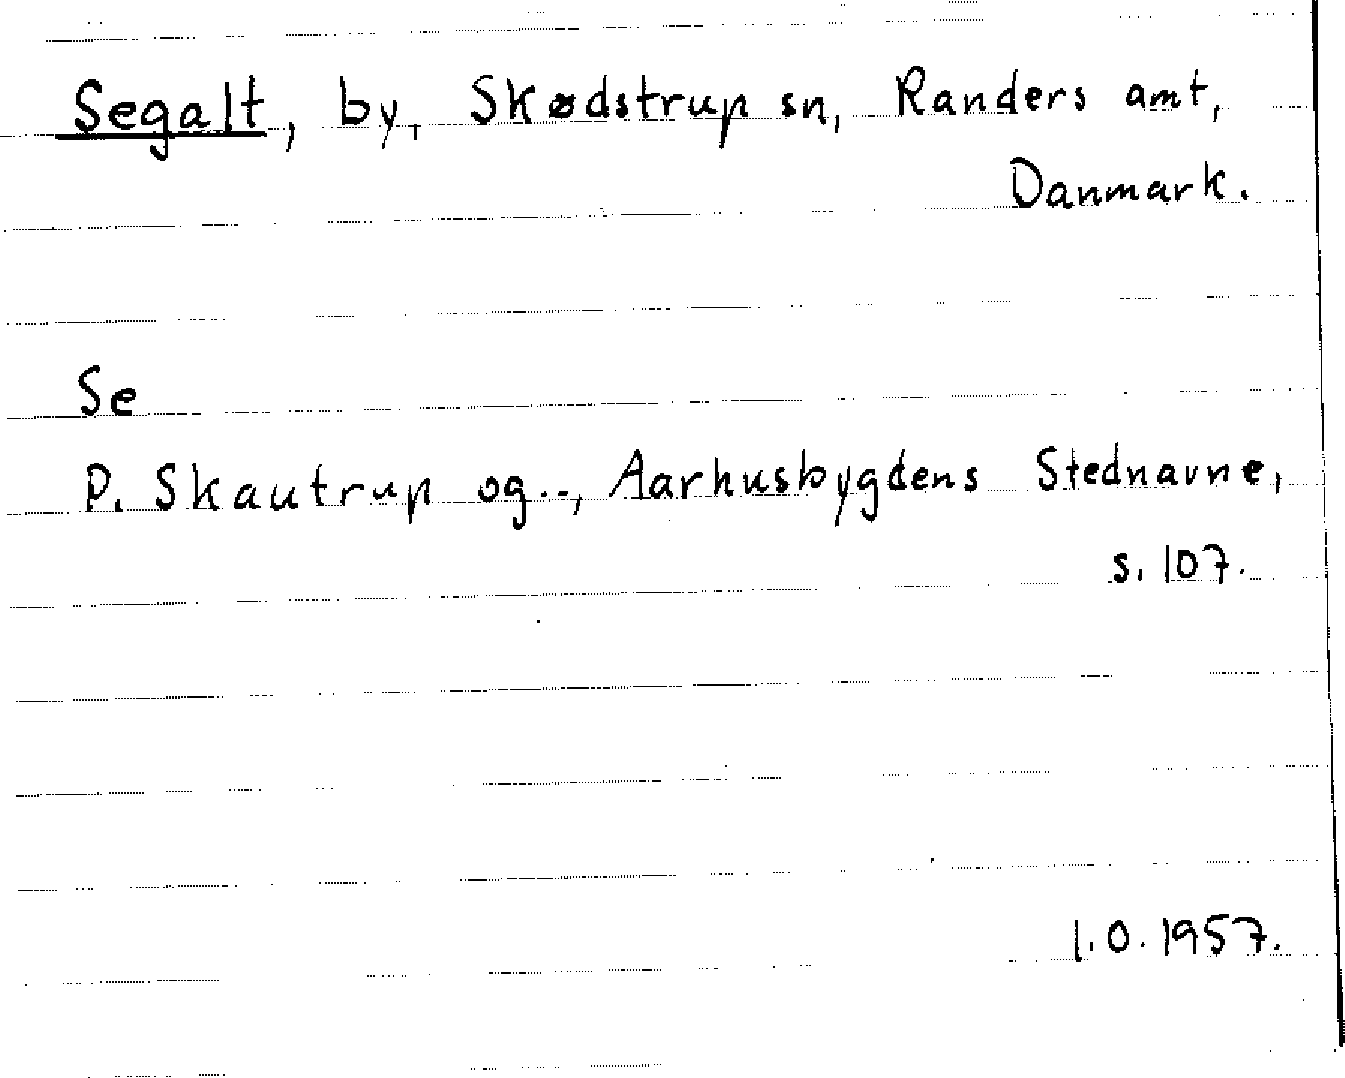 Segalt, by, Skødstrup sn, Randers amt,
Danmark.
Se
P. Skautrup og.., Aarhusbygdens Stednavne,
s. 107.
I.O. 1957.